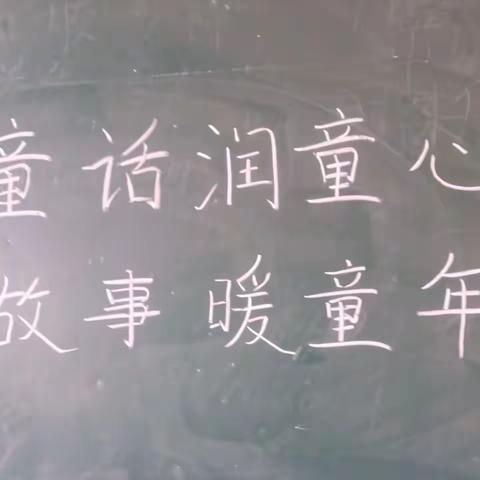 童话润童心
故事暖童年